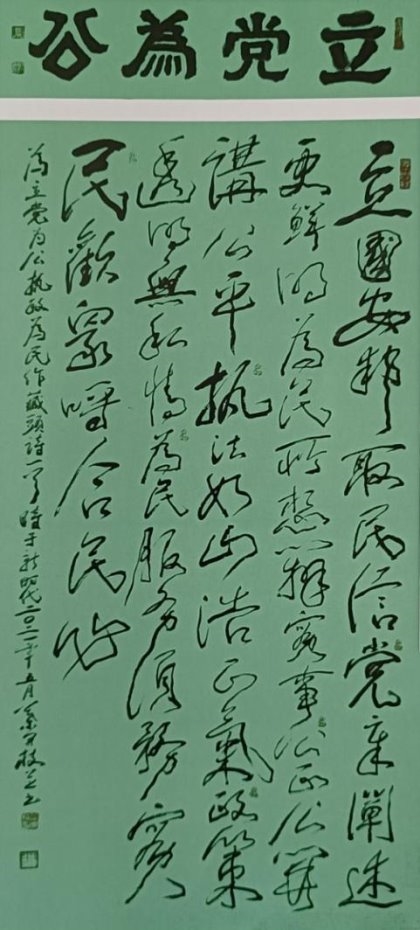 立党為公
立國安邦取民信党章闡述
更鮮明為民所想辦實事公正公開
講公平执法如山浩正氣政策
透明無私情為民服务須務實
民歡眾呼合民
為立党为公执政為民作藏頭詩一首時于新時代二〇二一年五月